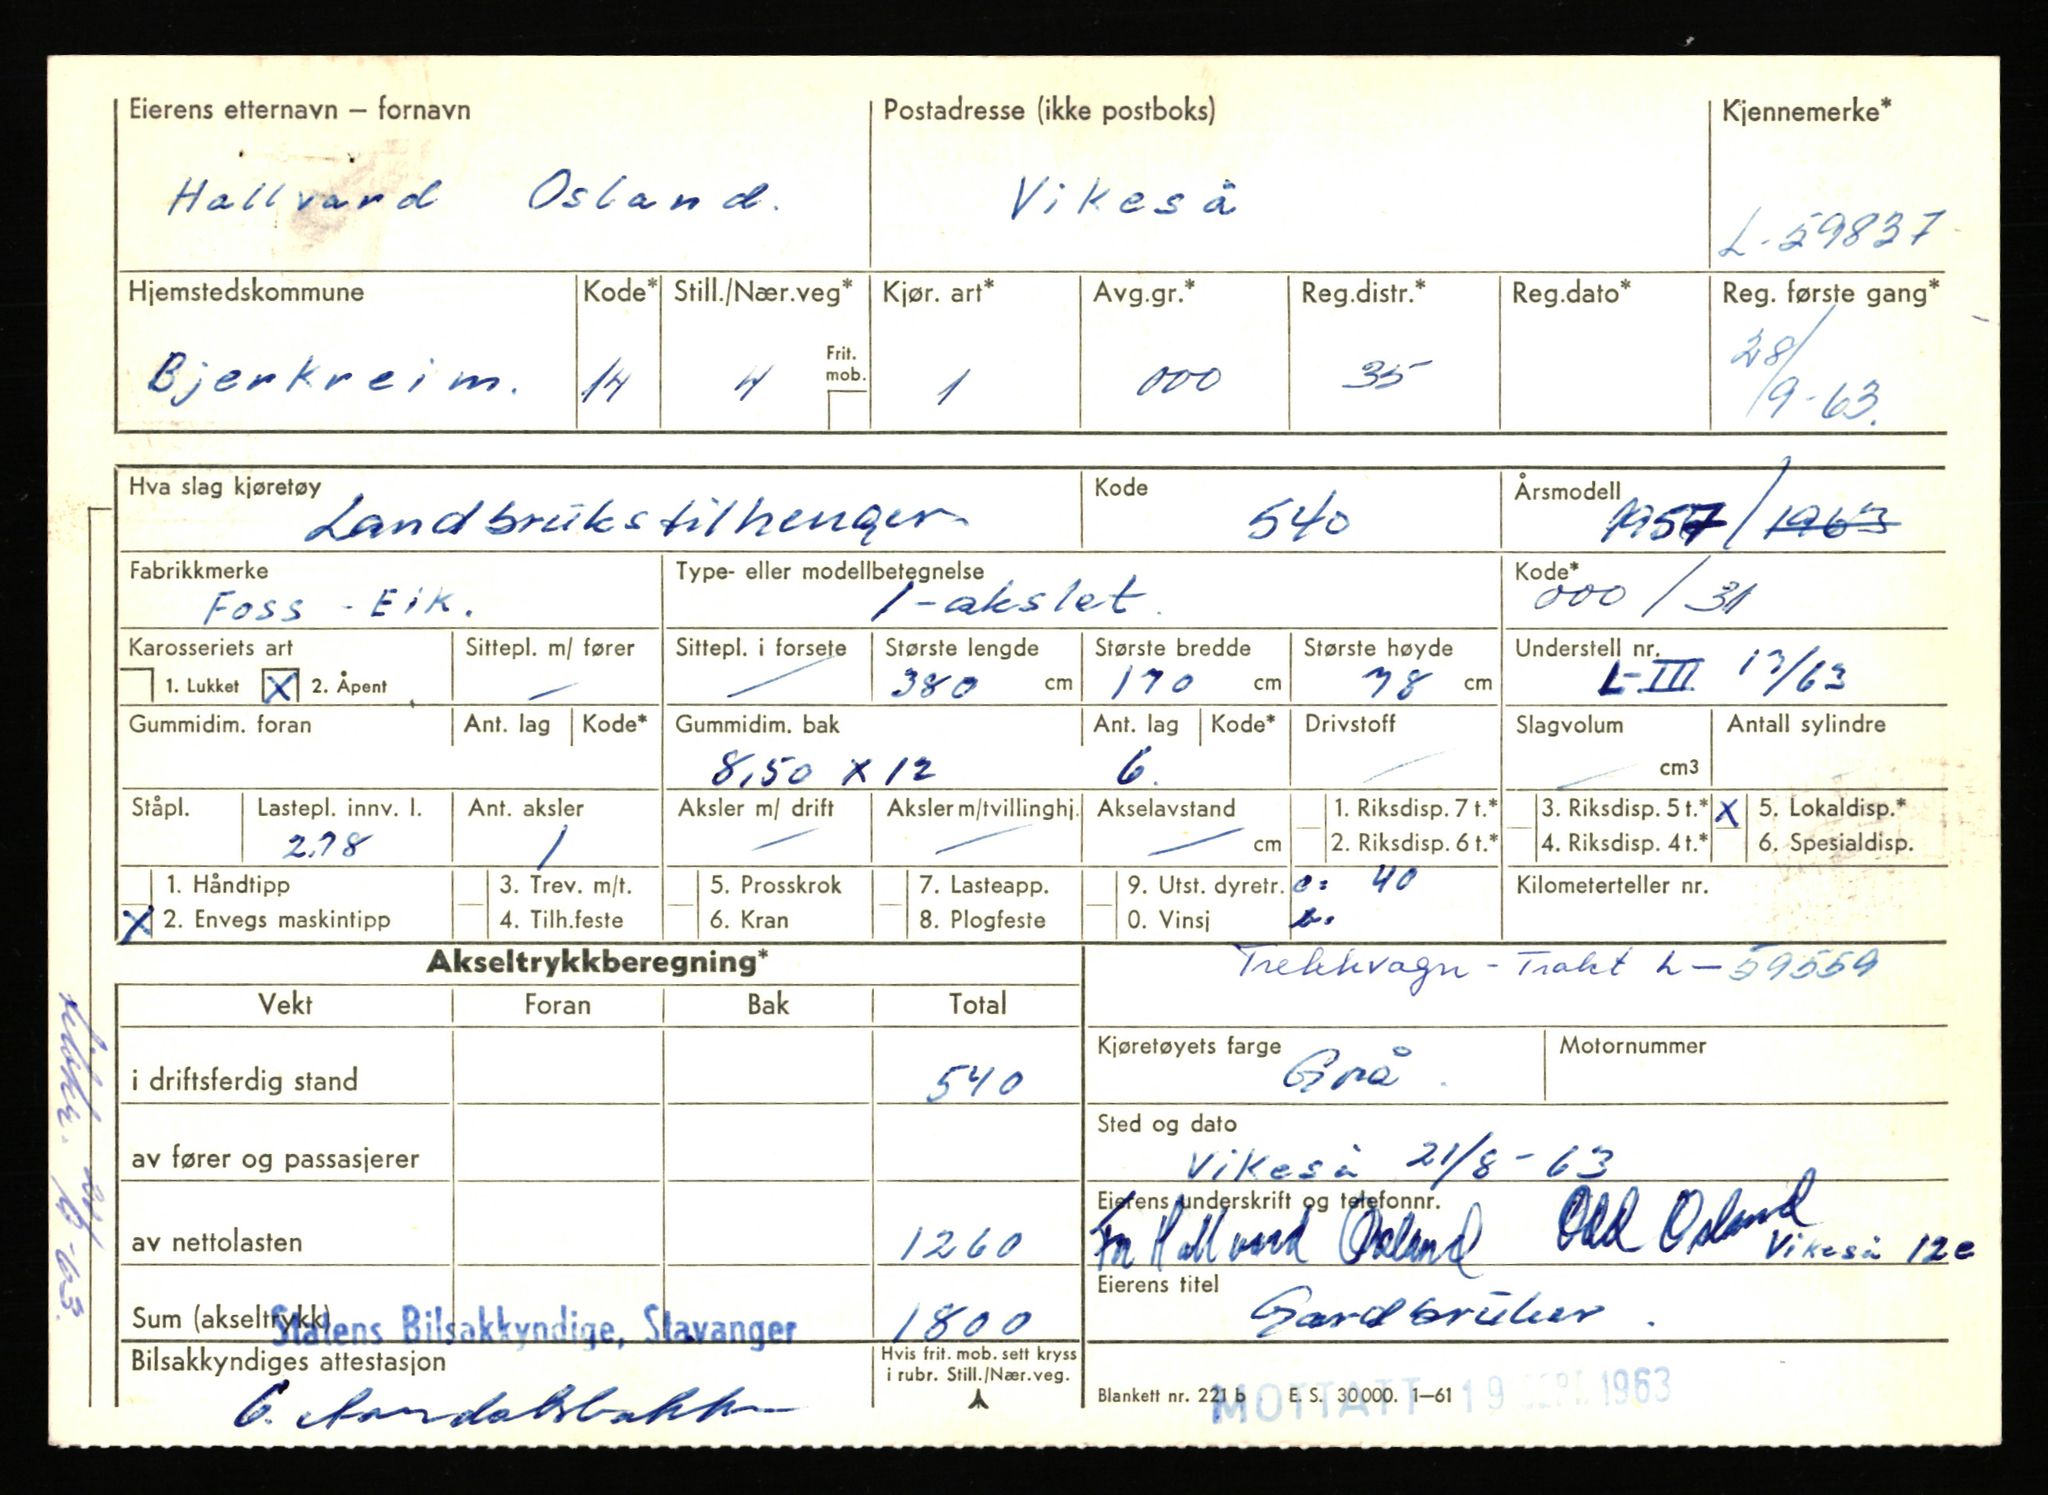 Eierens etternavn – fornavn Postadresse (ikke postboks) Kjennemerke*
Hallvard Osland. Vikeså
L-59837
Hjemstedskommune Kode* Still./Nær.veg* Kjør. art* Avg.gr.* Reg.distr.* Reg.dato* Reg. første gang*
Frit. mob.
Bjerkreim. 14 4 1 000 35 28/9-63.
Hva slag kjøretøy Kode Årsmodell
Landbrukstilhenger 540 1957/1963
Fabrikkmerke Type- eller modellbetegnelse Kode*
Foss - Eik. 1-akslet. 000/31
Karosseriets art Sittepl. m/ fører Sittepl. i forsete Største lengde Største bredde Største høyde Understell nr.
1. Lukket X 2. Åpent – / 380 cm 170 cm 78 cm L-III 17/63
Gummidim. foran Ant. lag Kode* Gummidim. bak Ant. lag Kode* Drivstoff Slagvolum Antall sylindre
8,50 x 12 6. / / cm3
Ståpl. Lastepl. innv. l. Ant. aksler Aksler m/ drift Aksler m/tvillinghj. Akselavstand 1. Riksdisp. 7 t.* 3. Riksdisp. 5 t.* X 5. Lokaldisp.*
278 1 / / / cm 2. Riksdisp. 6 t.* 4. Riksdisp. 4 t.* 6. Spesialdisp.
1. Håndtipp 3. Trev. m/t. 5. Prosskrok 7. Lasteapp. 9. Utst. dyretr. e: 40 Kilometerteller nr.
X 2. Envegs maskintipp 4. Tilh.feste 6. Kran 8. Plogfeste 0. Vinsj b.
Akseltrykkberegning* Trekkvogn - Trakt L-59559
Vekt Foran Bak Total
Kjøretøyets farge Motornummer
i driftsferdig stand 540 Grå.
Sted og dato
av fører og passasjerer Vikeså 21/8-63
Eierens underskrift og telefonnr.
av nettolasten 1260 For Hallvard Osland Odd Osland Vikeså 12e
Eierens titel
Sum (akseltrykk) 1800 Gardbruker.
Statens Bilsakkyndige, Stavanger
Bilsakkyndiges attestasjon Hvis frit. mob. sett kryss
i rubr. Still./Nær.veg.
Blankett nr. 221 b E. S. 30000. 1–61
MOTTATT 19 SEPT. 1963